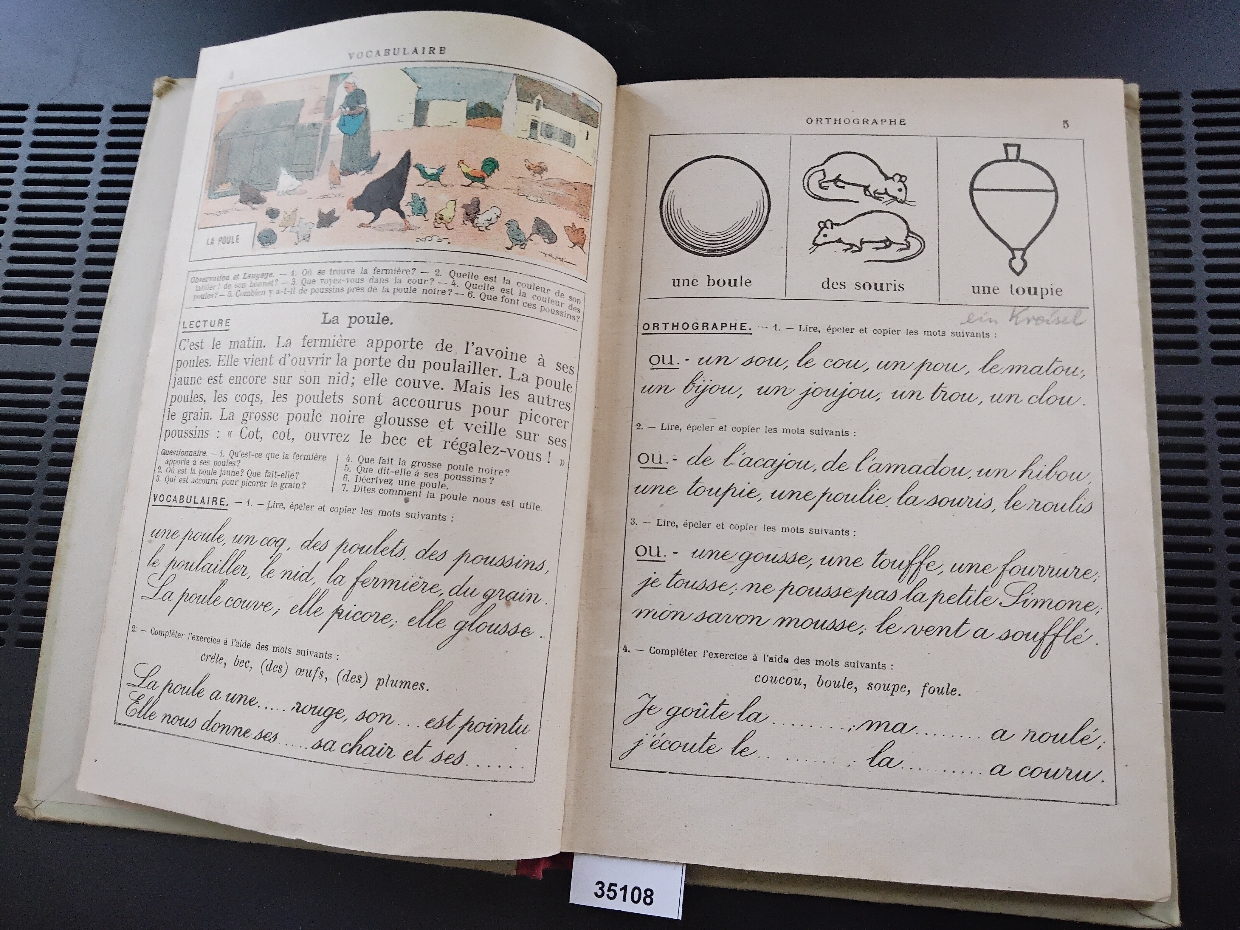 VOCABULAIRE
LA POULE
Observation et Langage. — 1. Où se trouve la fermière? — 2. Quelle est la couleur de son
tablier? de son bonnet? — 3. Que voyez-vous dans la cour? — 4. Quelle est la couleur des
poules? — 5. Combien y a-t-il de poussins près de la poule noire? — 6. Que font ces poussins?
LECTURE
La poule.
C'est le matin. La fermière apporte de l'avoine à ses
poules. Elle vient d'ouvrir la porte du poulailler. La poule
jaune est encore sur son nid; elle couve. Mais les autres
poules, les coqs, les poulets sont accourus pour picorer
le grain. La grosse poule noire glousse et veille sur ses
poussins : « Cot, cot, ouvrez le bec et régalez-vous ! »
Questionnaire. — 1. Qu'est-ce que la fermière
apporte à ses poules?
2. Où est la poule jaune? Que fait-elle?
3. Qui est accouru pour picorer le grain?
4. Que fait la grosse poule noire?
5. Que dit-elle à ses poussins?
6. Décrivez une poule.
7. Dites comment la poule nous est utile.
VOCABULAIRE. — 1. — Lire, épeler et copier les mots suivants :
une poule, un coq, des poulets, des poussins,
le poulailler, le nid, la fermière, du grain.
La poule couve; elle picore; elle glousse.
2. — Compléter l'exercice à l'aide des mots suivants :
crête, bec, (des) œufs, (des) plumes.
La poule a une..... rouge, son.... est pointu
Elle nous donne ses .... sa chair et ses......
ORTHOGRAPHE
5
une boule
des souris
une toupie
ein Kreisel
ORTHOGRAPHE. — 1. — Lire, épeler et copier les mots suivants :
ou.- un sou, le cou, un pou, le matou,
un bijou, un joujou, un trou, un clou.
2. — Lire, épeler et copier les mots suivants :
ou.- de l'acajou, de l'amadou, un hibou,
une toupie, une poulie, la souris, le roulis
3. — Lire, épeler et copier les mots suivants :
ou.- une gousse, une touffe, une fourrure;
je tousse; ne pousse pas la petite Simone;
mon savon mousse; le vent a soufflé.
4. — Compléter l'exercice à l'aide des mots suivants :
coucou, boule, soupe, foule.
Je goûte la ........; ma ........ a roulé;
j'écoute le ......... la ......... a couru.
35108